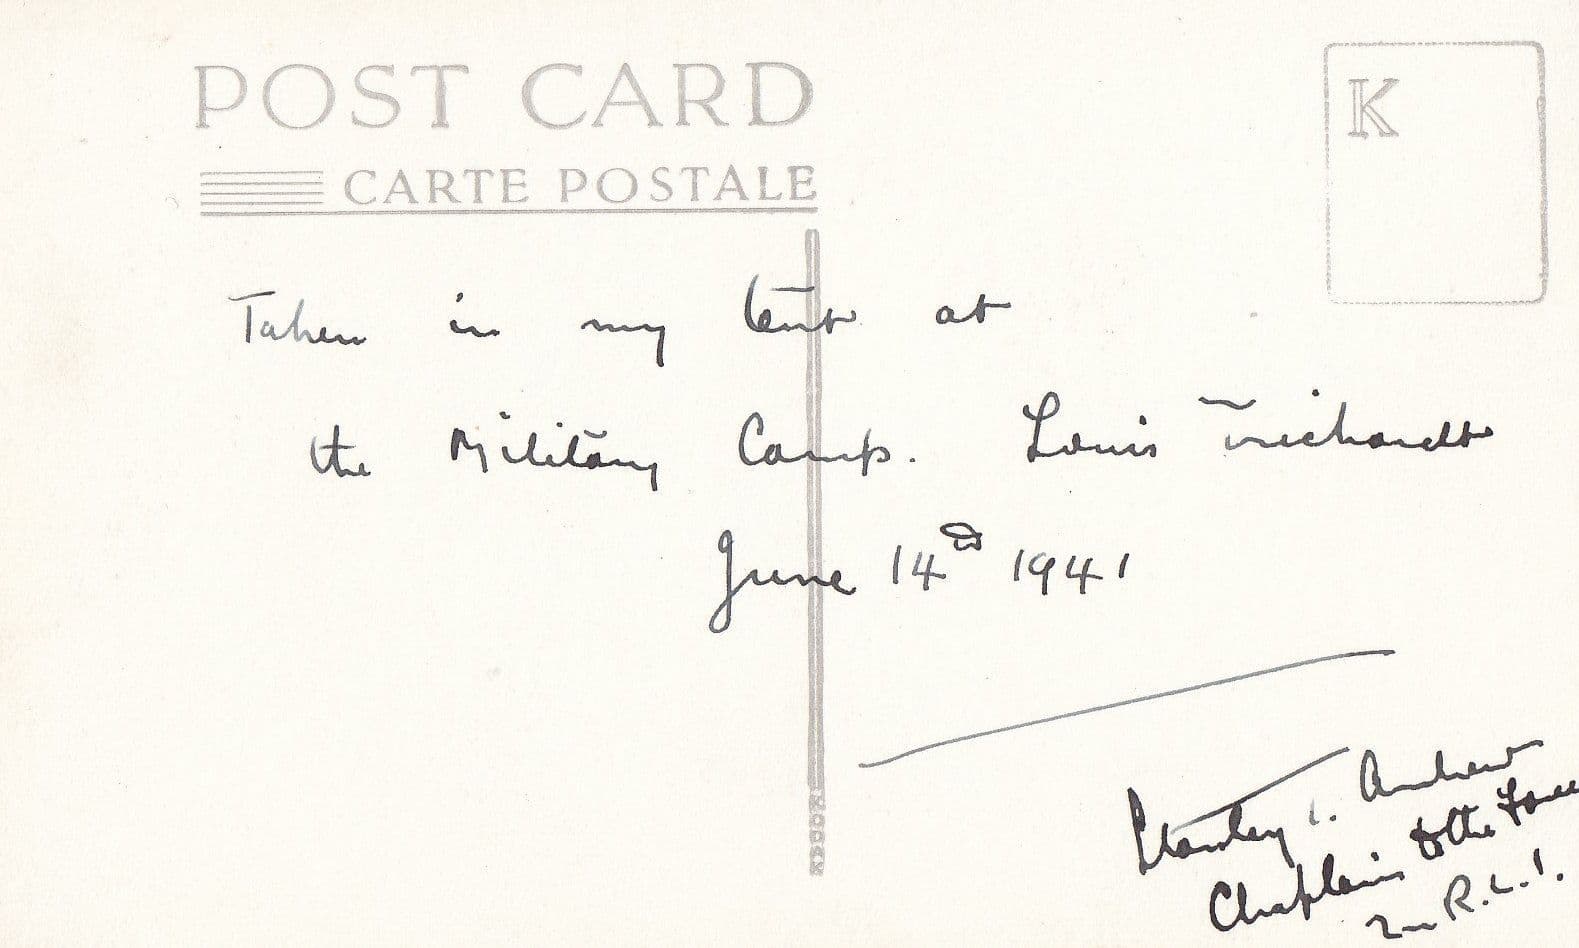 POST CARD
K
CARTE POSTALE
Taken in my tent at
the Military Camp. Louis Trichardt
June 14th 1941
Stanley T. Andrew
Chaplain to the Forces
R.L.I.
KODAK